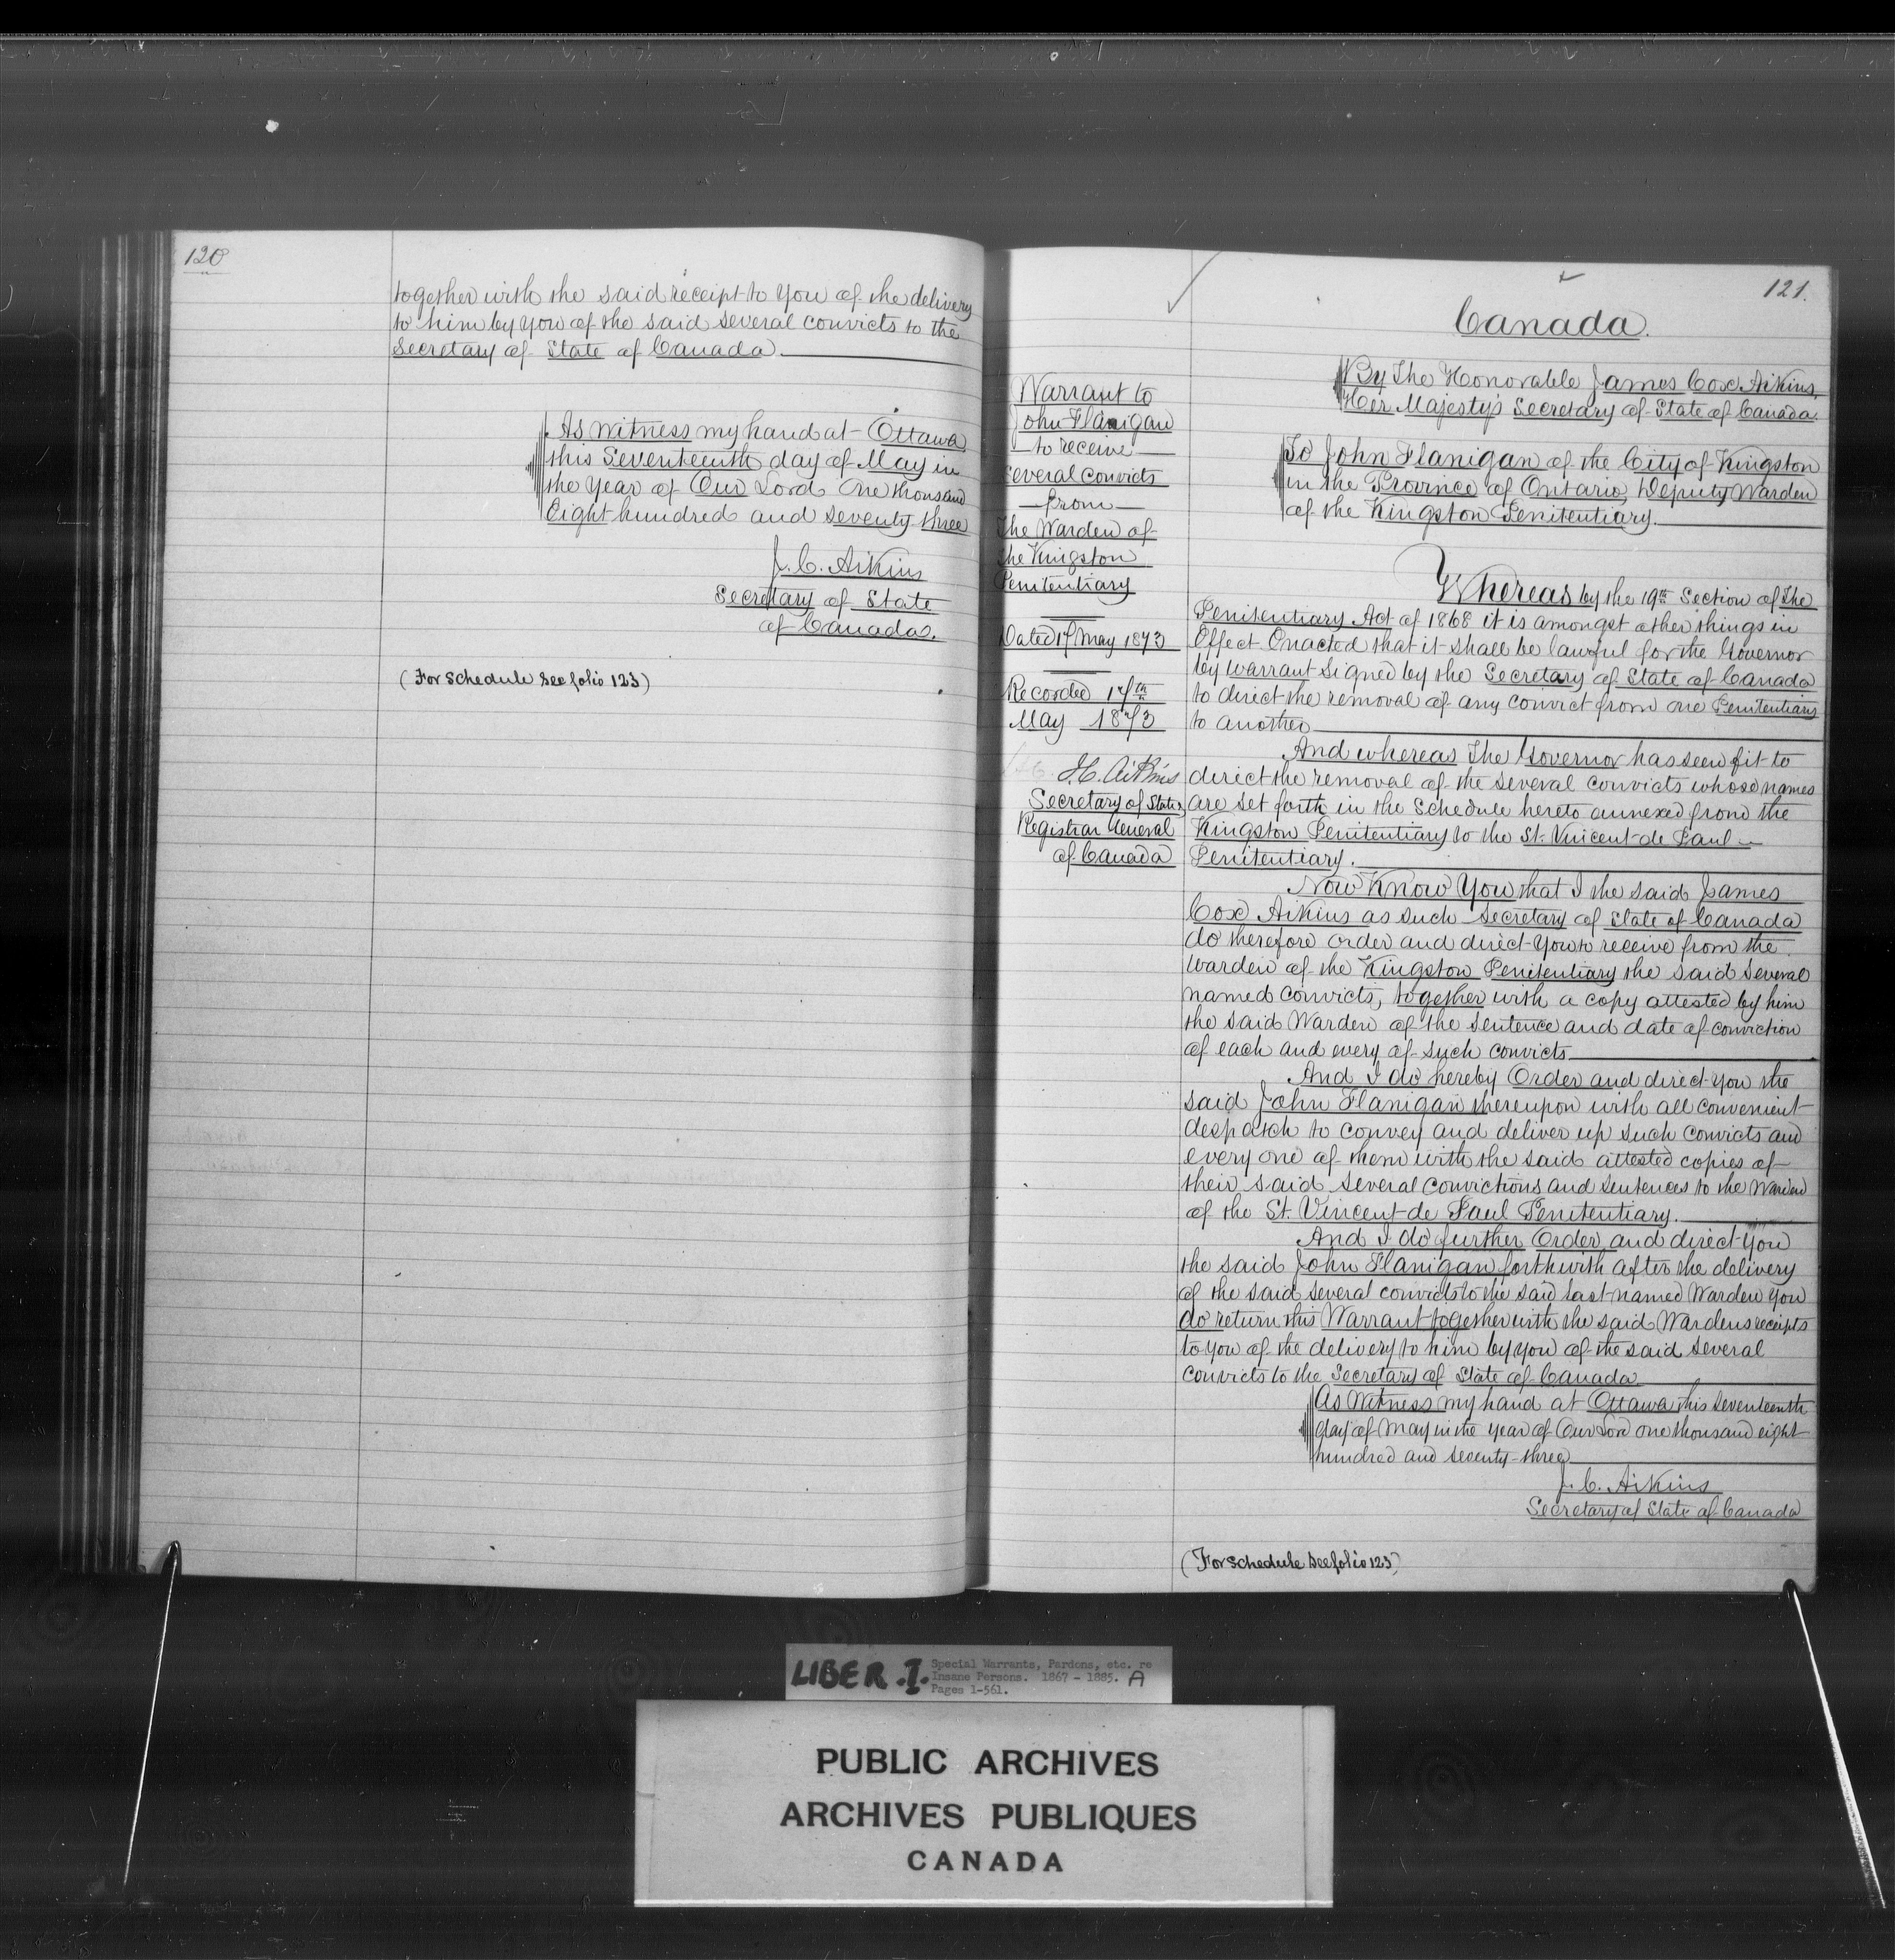 120
together with the said receipt to You of the delivery
to him by you of the said several convicts to the
Secretary of State of Canada.
As Witness my hand at Ottawa
this Seventeenth day of May in
the Year of Our Lord One thousand
Eight hundred and seventy three
J. C. Aikins
Secretary of State
of Canada.
(For Schedule see folio 123)
121.
Canada.
By The Honorable James Cox Aikins,
Her Majesty's Secretary of State of Canada.
To John Flanigan of the City of Kingston
in the Province of Ontario, Deputy Warden
of the Kingston Penitentiary.
Warrant to
John Flanigan
to receive
several Convicts
from
The Warden of
the Kingston
Penitentiary
Dated 17 May 1873
Recorded 17th
May 1873
J.C. Aikins
Secretary of State &
Registrar General
of Canada
Whereas by the 19th Section of The
Penitentiary Act of 1868 it is amongst other things in
Effect Enacted that it shall be lawful for the Governor
by warrant signed by the Secretary of State of Canada
to direct the removal of any convict from one Penitentiary
to another
And whereas The Governor has seen fit to
direct the removal of the several convicts whose names
are set forth in the Schedule hereto annexed from the
Kingston Penitentiary to the St. Vincent de Paul
Penitentiary.
Now Know You that I the said James
Cox Aikins as such Secretary of State of Canada
do therefore order and direct You to receive from the
Warden of the Kingston Penitentiary the said several
named convicts, together with a copy attested by him
the said Warden of the sentence and date of conviction
of each and every of such convicts
And I do hereby Order and direct you the
said John Flanigan thereupon with all convenient
despatch to convey and deliver up such convicts and
every one of them with the said attested copies of
their said several convictions and sentences to the Warden
of the St. Vincent de Paul Penitentiary.
And I do further Order and direct You
the said John Flanigan forthwith after the delivery
of the said several convicts to the said last named Warden you
do return this Warrant together with the said Wardens receipts
to you of the delivery to him by you of the said several
convicts to the Secretary of State of Canada
As Witness my hand at Ottawa this seventeenth
day of May in the year of Our Lord one thousand eight
hundred and seventy-three
J. C. Aikins
Secretary of State of Canada
(For Schedule see folio 123)
LIBER .I. Special Warrants, Pardons, etc. re
Insane Persons. 1867 - 1885. A
Pages 1-561.
PUBLIC ARCHIVES
ARCHIVES PUBLIQUES
CANADA